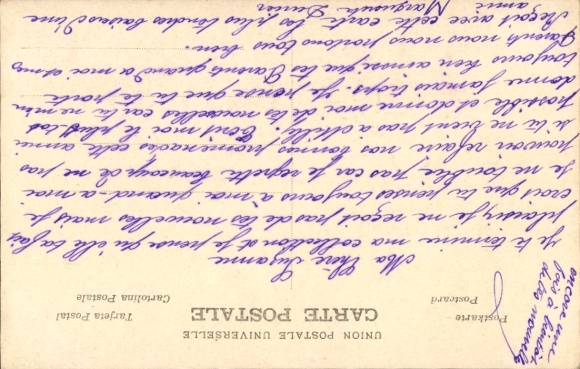 UNION POSTALE UNIVERSELLE
CARTE POSTALE
Postkarte
Postcard
Tarjeta Postal
Cartolina Postale
Ma Chère Suzanne
Je te termine ma collection et je pense qu'elle te fais
plaisir je ne reçoit pas de tes nouvelles mais je
crois que tu penses toujours à moi quand-à-moi
je ne t'oublie pas car je regrette beaucoup de ne pas
pouvoir refaire nos bonnes promenades cette année
si tu ne vient pas a Ecrit moi le plus tot
possible et donne moi de tes nouvelles car tu ne m'en
donne jamais trops. Je pense que tu te porte
toujours bien ainsi que tes Parents quand a moi et mes
Parents nous nous portons tous bien.
Reçoit avec cette carte les plus tendres baisers d'une
amie Marguerite
encore une
fois à bientôt
de tes nouvelles